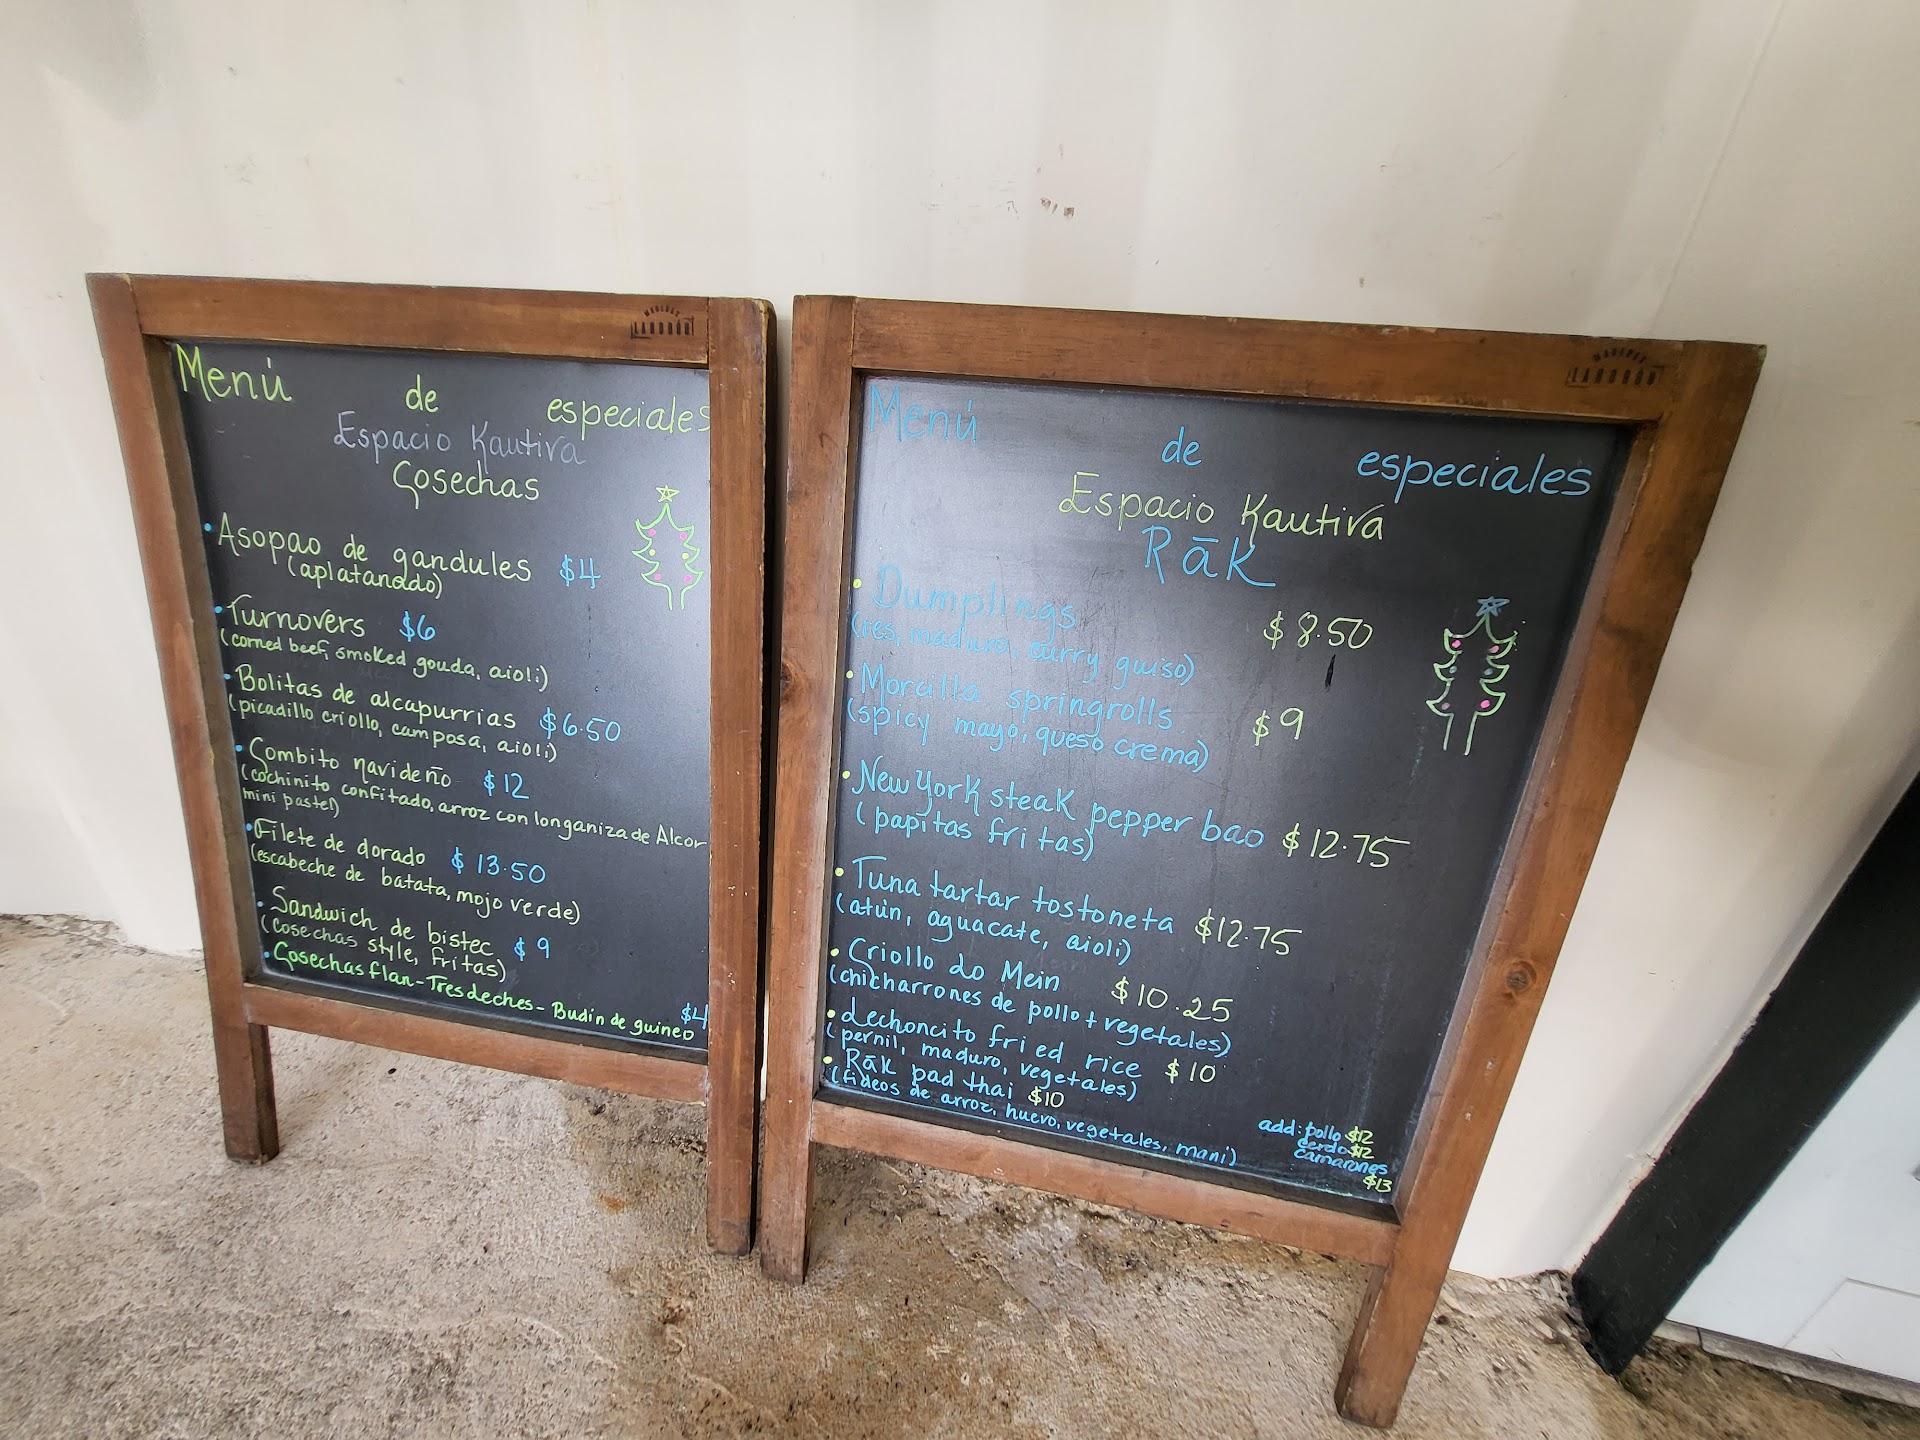 Menú de especiales
Espacio Kautiva
Cosechas
• Asopao de gandules $4
(aplatanado)
• Turnovers $6
(corned beef, smoked gouda, aioli)
• Bolitas de alcapurrias $6.50
(picadillo criollo, camposa, aioli)
• Combito navideño $12
(cochinito confitado, arroz con longaniza de Alcor
mini pastel)
• Filete de dorado $13.50
(escabeche de batata, mojo verde)
• Sandwich de bistec $9
(cosechas style, fritas)
• Cosechas flan - Tres leches - Budín de guineo $4
LANDRÓN
Menú de especiales
Espacio Kautiva
Rāk
• Dumplings $8.50
(res, maduro, curry guiso)
• Morcilla springrolls $9
(spicy mayo, queso crema)
• New York steak pepper bao $12.75
(papitas fritas)
• Tuna tartar tostoneta $12.75
(atún, aguacate, aioli)
• Criollo Lo Mein $10.25
(chicharrones de pollo + vegetales)
• Lechoncito fried rice $10
(pernil, maduro, vegetales)
• Rāk pad thai $10
(fideos de arroz, huevo, vegetales, maní)
add: pollo $12
cerdo $12
camarones
$13
LANDRÓN